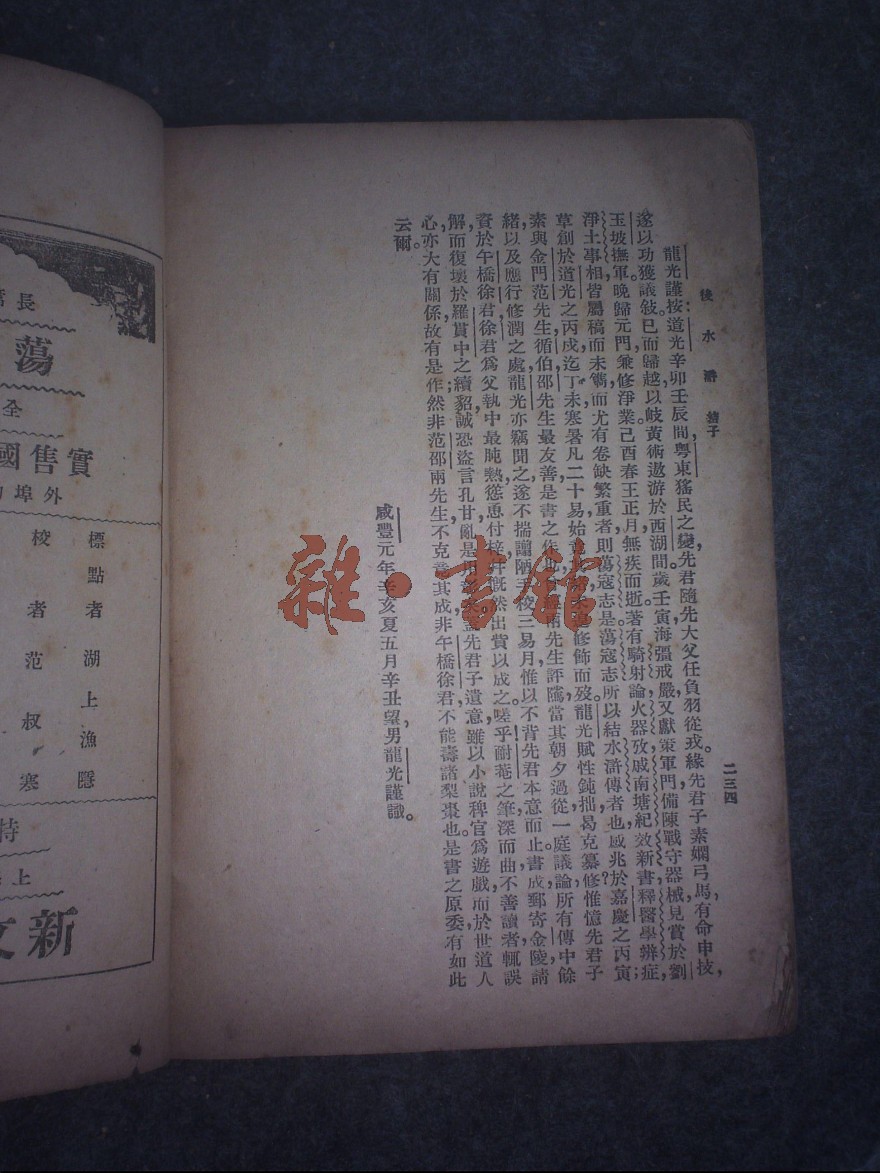 後水滸 結子 二三四
龍光謹按:道光辛卯壬辰間,粵東猺民之變,先君隨先大父任負羽從戎。緣先君子素嫻弓馬,有命申技,
遂以功獲議敍。已而歸越以岐黃術遨游於西湖間。歲壬寅,海疆戒嚴,又獻策軍門,備陳戰守器械,見賞於劉
玉坡撫軍。晚歸元門,兼修淨業。己酉春王正月無疾而逝。著有騎射論火器攷戚南塘紀效新書釋醫學辨症,
淨土事相,皆屬稿而未鐫,而尤有卷帙繁重者則蕩寇志是蕩寇志所以結水滸傳者也感兆於嘉慶之丙寅;
草創於道光之丙戌,迄丁未,寒暑凡二十易,始 緒,未 修飾而歿。龍光賦性鈍拙,曷克纂修?惟憶先君子
素與金門范先生,循伯邵先生最友善。是書之作也, 兩先生評隲,當其朝夕過從,一庭議論,所有傳中餘
緒以及應行修潤之處,龍光亦竊聞之。遂不揣譾陋,手校三易月,惟以不背先君本意而止。書成,郵寄金陵,請
資於午橋徐君,徐君爲父執中最肫熱,慫恿付梓,并慨然出貲以成之。嗟乎!耐菴之筆深而曲,不善讀者,輒誤
解,而復壞於羅貫中之續貂;誠恐盜言孔甘,亂是用 蓋先君子遺意,雖以小說稗官爲遊戲,而於世道人
心亦大有關係,故有是作。然非范邵兩先生不克竟其成,非午橋徐君不能壽諸梨棗也。是書之原委有如此
云爾。
咸豐元年辛亥夏五月辛丑望,男龍光謹識。
雜·書館
長
蕩
全
實售國
外埠
標點者 湖上漁隱
校者 范叔寒
特
上
新文